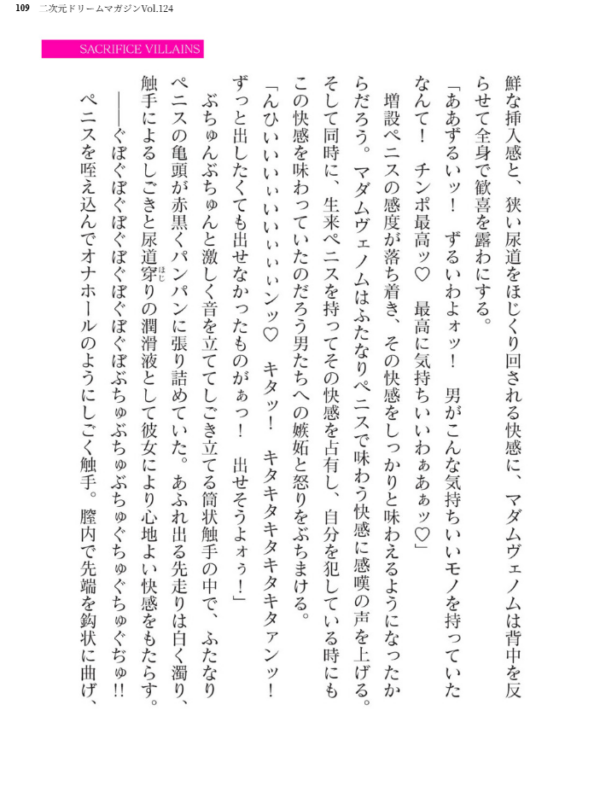 109 二次元ドリームマガジンVol.124
SACRIFICE VILLAINS
鮮な挿入感と、狭い尿道をほじくり回される快感に、マダムヴェノムは背中を反
らせて全身で歓喜を露わにする。
「ああずるいッ！　ずるいわよォッ！　男がこんな気持ちいいモノを持っていた
なんて！　チンポ最高ッ♡　最高に気持ちいいわぁあぁッ♡」
増設ペニスの感度が落ち着き、その快感をしっかりと味わえるようになったか
らだろう。マダムヴェノムはふたなりペニスで味わう快感に感嘆の声を上げる。
そして同時に、生来ペニスを持ってその快感を占有し、自分を犯している時にも
この快感を味わっていたのだろう男たちへの嫉妬と怒りをぶちまける。
「んひぃいいいぃいいいぃぃンッ♡　キタッ！　キタキタキタキタキタァンッ！
ずっと出したくても出せなかったものがぁっ！　出せそうよォぅ！」
ぶちゅんぶちゅんと激しく音を立ててしごき立てる筒状触手の中で、ふたなり
ペニスの亀頭が赤黒くパンパンに張り詰めていた。あふれ出る先走りは白く濁り、
触手によるしごきと尿道穿りの潤滑液として彼女により心地よい快感をもたらす。
ほじ
――ぐぽぐぽぐぽぐぽぐぽぐぽぶちゅぶちゅぶちゅぐちゅぐちゅぐぢゅ!!
ペニスを咥え込んでオナホールのようにしごく触手。膣内で先端を鈎状に曲げ、